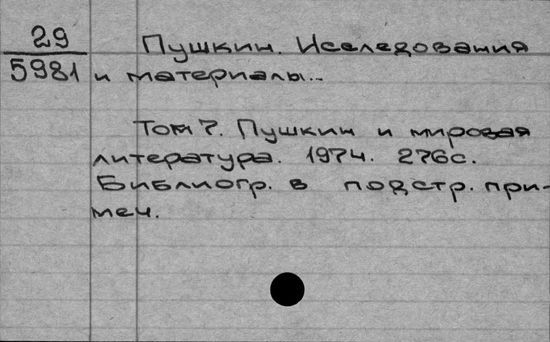 29 Пушкин. Исследования
5981 и материалы...
Том 7. Пушкин и мировая
литература. 1974. 276с.
Библиогр. в подстр. при-
меч.